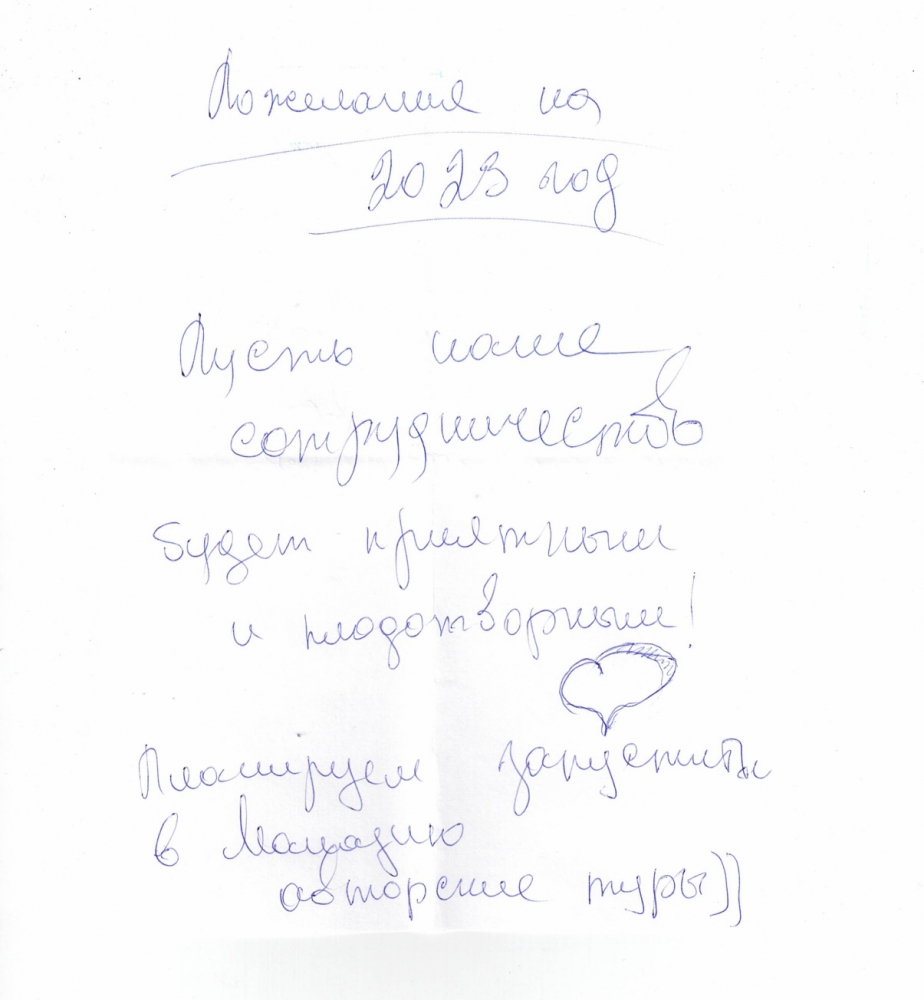 Пожелания на
2023 год
Пусть наше
сотрудничество
будет приятным
и плодотворным!
Планируем запустить
в
авторские туры))